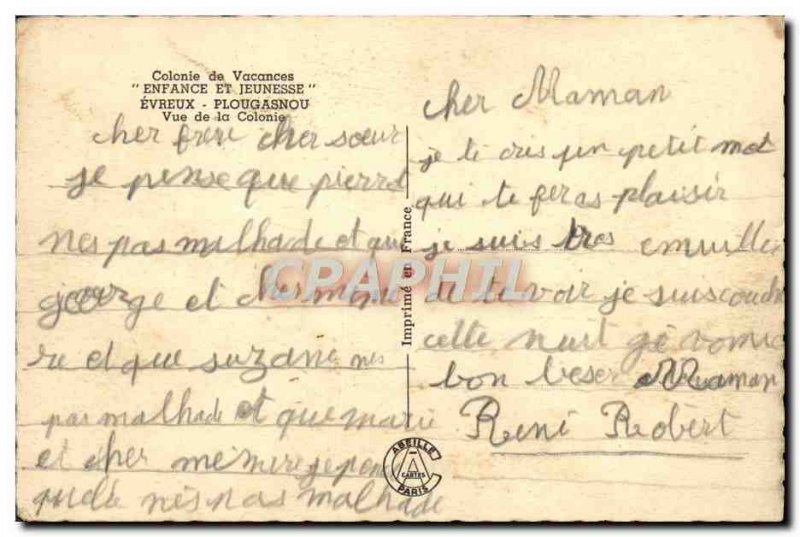 Colonie de Vacances
"ENFANCE ET JEUNESSE"
ÉVREUX - PLOUGASNOU
Vue de la Colonie
cher frere cher sœur
je pense que pierre
nes pas malhade et que
george et cher
et que suzane nes
pas malhade et que marie
et cher je pense
nes pas malhade
Imprimé en France
CPRAPHIL
ABEILLE
CARTES
PARIS
cher Maman
je te cris un petit mot
qui te feras plaisir
je suis tres
de te voir je suis couche
cette nuit gé vomie
bon beser Maman
René Robert